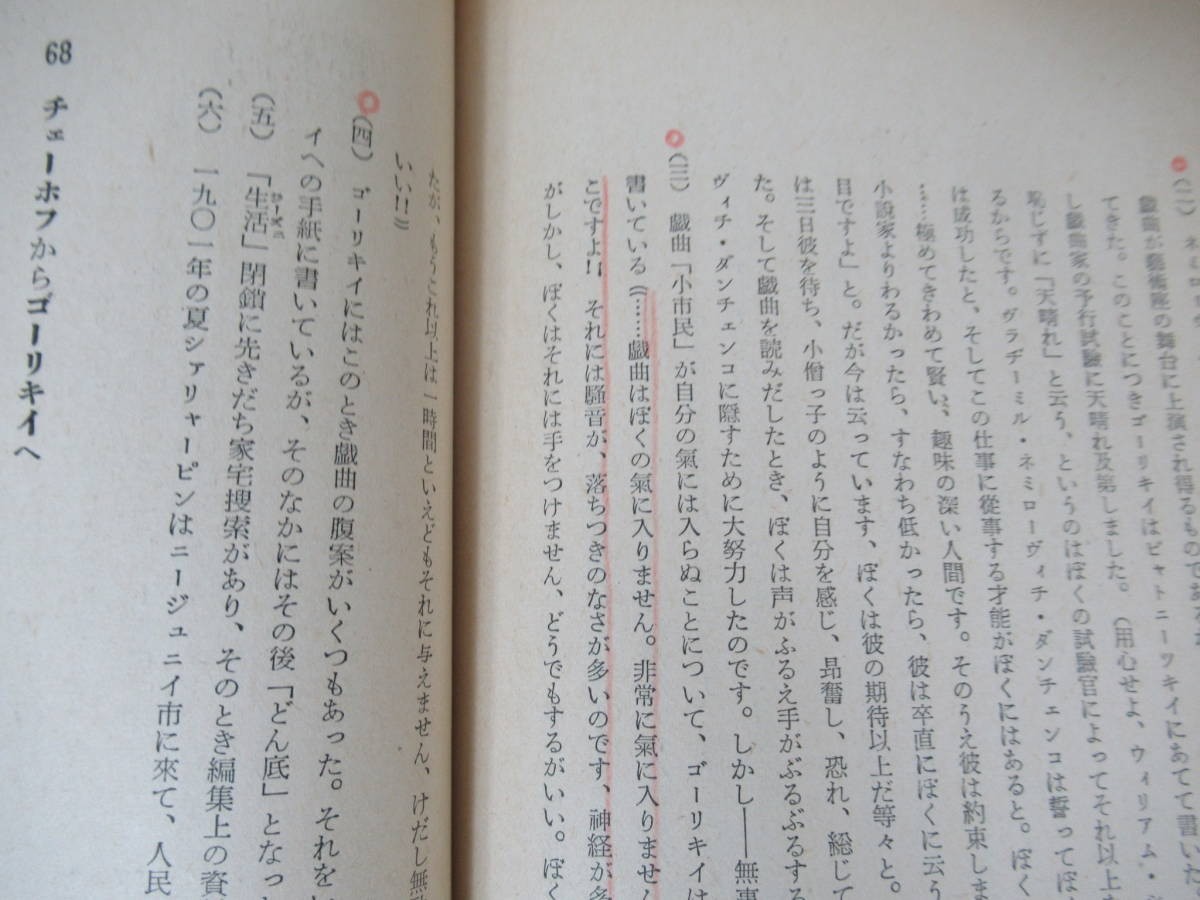 (二) ネミロ
戯曲が藝術座の舞台に上演され得るものである
てきた。このことにつきゴーリキイはピャトニーツキイにあてて書いた
し戯曲家の予行試驗に天晴れ及第しました。(用心せよ、ウィリアム・
恥じずに「天晴れ」と云う、というのはぼくの試驗官によってそれ以上ま
るからです。ヴラヂーミル・ネミローヴィチ・ダンチェンコは誓ってぼ
は成功したと、そしてこの仕事に從事する才能がぼくにはあると。ぼく
……極めてきわめて賢い、趣味の深い人間です。そのうえ彼は約束しま
小説家よりわるかったら、すなわち低かったら、彼は卒直にぼくに云う
目ですよ」と。だが今は云っています、ぼくは彼の期待以上だ等々と。
は三日彼を待ち、小僧っ子のように自分を感じ、昂奮し、恐れ、総じて
た。そして戯曲を読みだしたとき、ぼくは声がふるえ手がぶるぶるする
ヴィチ・ダンチェンコに隠すために大努力したのです。しかし――無事
(三) 戯曲「小市民」が自分の氣には入らぬことについて、ゴーリキイは
書いている《……戯曲はぼくの氣に入りません。非常に氣に入りません
こですよ!! それには騒音が、落ちつきのなさが多いのです、神経が多
がしかし、ぼくはそれには手をつけません、どうでもするがいい。ぼく
たが、もうこれ以上は一時間といえどもそれに与えません、けだし無
いい!!》
(四) ゴーリキイにはこのとき戯曲の腹案がいくつもあった。それを
イへの手紙に書いているが、そのなかにはその後「どん底」となっ
(五) 「生活」閉鎖に先きだち家宅搜索があり、そのとき編集上の資
(六) 一九〇一年の夏シァリャーピンはニージュニイ市に來て、人民
68 チェーホフからゴーリキイへ